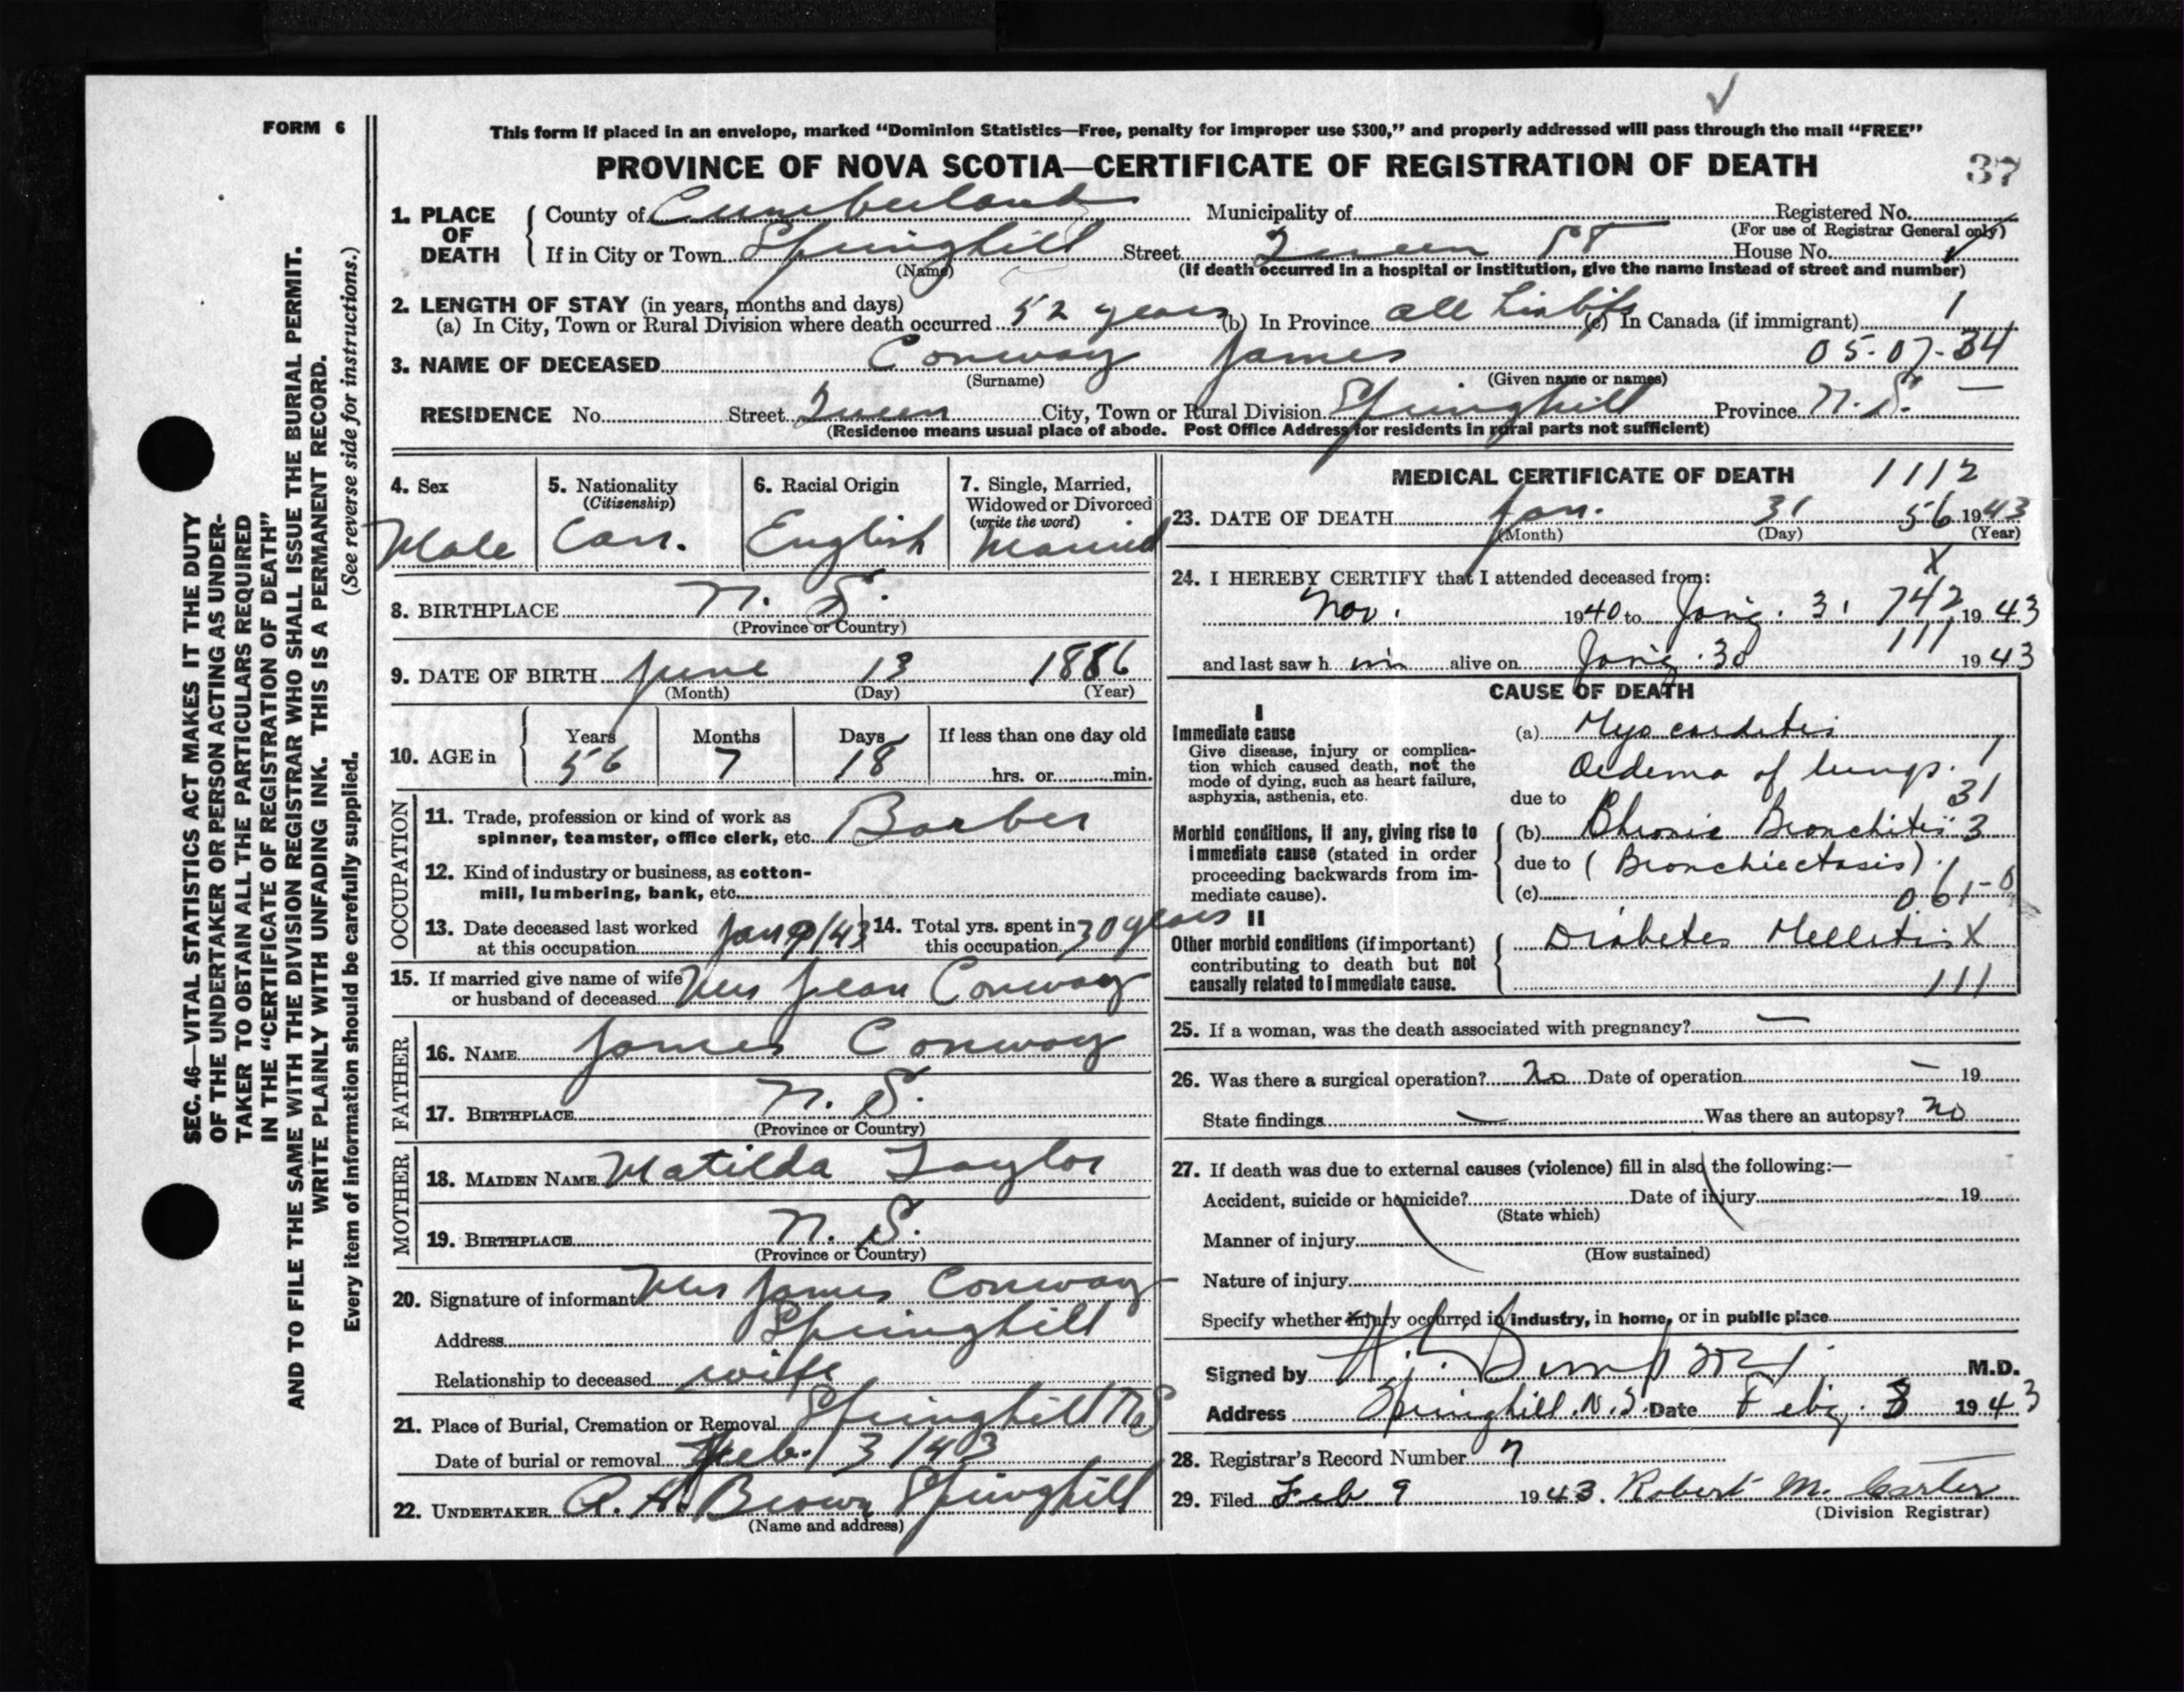 FORM 6
This form if placed in an envelope, marked “Dominion Statistics—Free, penalty for improper use $300,” and properly addressed will pass through the mail “FREE”
PROVINCE OF NOVA SCOTIA—CERTIFICATE OF REGISTRATION OF DEATH
37
1. PLACE OF DEATH
County of Cumberland Municipality of Registered No.
(For use of Registrar General only)
If in City or Town Springhill Street Queen ST House No.
(Name)
(If death occurred in a hospital or institution, give the name instead of street and number)
2. LENGTH OF STAY (in years, months and days)
(a) In City, Town or Rural Division where death occurred 52 years (b) In Province all his life (c) In Canada (if immigrant) 1
3. NAME OF DECEASED Conway James 05-07-34
(Surname) (Given name or names)
RESIDENCE No. Street Queen City, Town or Rural Division Springhill Province N. S. —
(Residence means usual place of abode. Post Office Address for residents in rural parts not sufficient)
4. Sex
Male
5. Nationality
(Citizenship)
Can.
6. Racial Origin
English
7. Single, Married,
Widowed or Divorced
(write the word)
Married
8. BIRTHPLACE N. S.
(Province or Country)
9. DATE OF BIRTH June 13 1886
(Month) (Day) (Year)
10. AGE in
Years Months Days If less than one day old
56 7 18 hrs. or min.
OCCUPATION
11. Trade, profession or kind of work as
spinner, teamster, office clerk, etc. Barber
12. Kind of industry or business, as cotton-
mill, lumbering, bank, etc.
13. Date deceased last worked
at this occupation Jan /43
14. Total yrs. spent in
this occupation 30 years
15. If married give name of wife
or husband of deceased Mrs Jean Conway
FATHER
16. NAME James Conway
17. BIRTHPLACE N. S.
(Province or Country)
MOTHER
18. MAIDEN NAME Matilda Taylor
19. BIRTHPLACE N. S.
(Province or Country)
20. Signature of informant Mrs James Conway
Address Springhill
Relationship to deceased wife
21. Place of Burial, Cremation or Removal Springhill N S
Date of burial or removal Feb. 3/43
22. UNDERTAKER A. H. Brown Springhill
(Name and address)
MEDICAL CERTIFICATE OF DEATH 1112
23. DATE OF DEATH Jan. 31 56 1943
(Month) (Day) (Year)
X
24. I HEREBY CERTIFY that I attended deceased from:
Nov. 1940 to Jan'y. 31 742 1943
111
and last saw h im alive on Jan'y. 30 1943
CAUSE OF DEATH
I
Immediate cause
Give disease, injury or complica-
tion which caused death, not the
mode of dying, such as heart failure,
asphyxia, asthenia, etc.
(a) Myocarditis
Oedema of lungs. 1
31
due to
Morbid conditions, if any, giving rise to
immediate cause (stated in order
proceeding backwards from im-
mediate cause).
(b) Chronic Bronchitis 3
due to (Bronchiectasis). 1
(c) 061-0
II
Other morbid conditions (if important)
contributing to death but not
causally related to immediate cause.
Diabetes Mellitis X
111
25. If a woman, was the death associated with pregnancy? —
26. Was there a surgical operation? No Date of operation — 19
State findings — Was there an autopsy? no
27. If death was due to external causes (violence) fill in also the following:—
Accident, suicide or homicide? Date of injury 19
(State which)
Manner of injury
(How sustained)
Nature of injury
Specify whether injury occurred in industry, in home, or in public place
Signed by M.D.
Address Springhill. N. S. Date Feb'y. 3 1943
28. Registrar's Record Number 7
29. Filed Feb 9 1943. Robert M. Carter
(Division Registrar)
SEC. 46—VITAL STATISTICS ACT MAKES IT THE DUTY
OF THE UNDERTAKER OR PERSON ACTING AS UNDER-
TAKER TO OBTAIN ALL THE PARTICULARS REQUIRED
IN THE “CERTIFICATE OF REGISTRATION OF DEATH”
AND TO FILE THE SAME WITH THE DIVISION REGISTRAR WHO SHALL ISSUE THE BURIAL PERMIT.
WRITE PLAINLY WITH UNFADING INK. THIS IS A PERMANENT RECORD.
Every item of information should be carefully supplied. (See reverse side for instructions.)